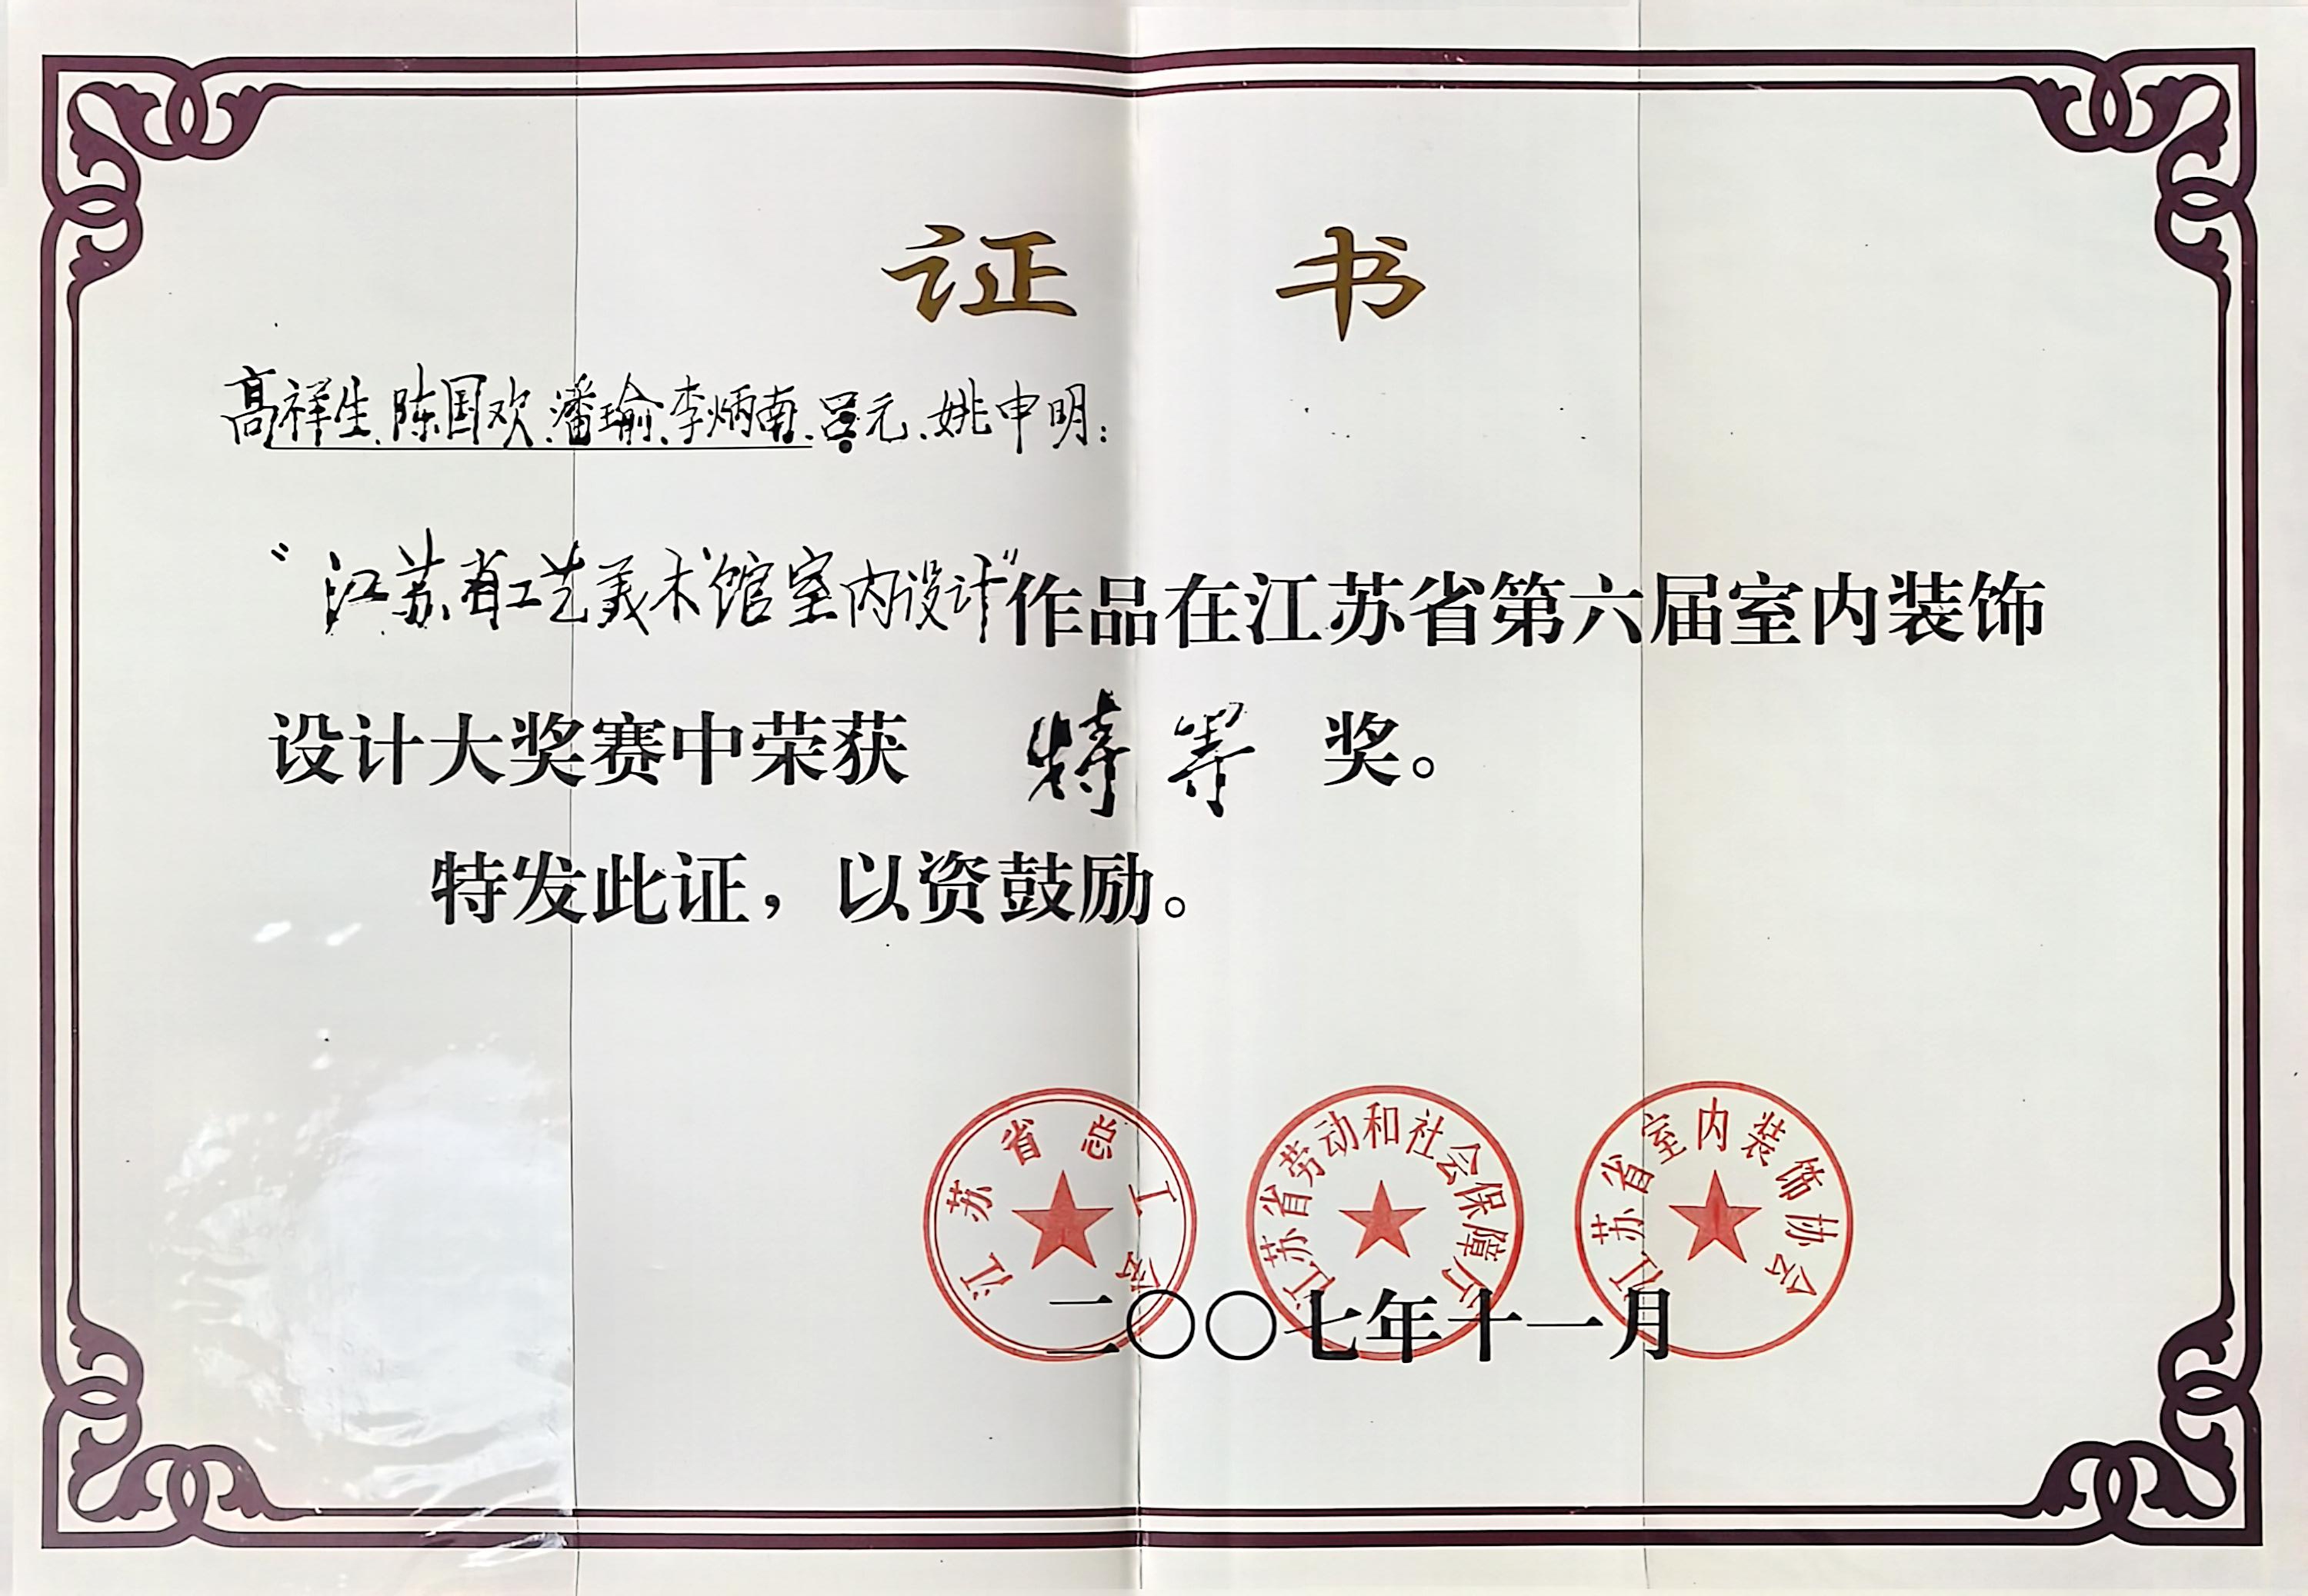 证书
高祥生、陈国欢、潘瑜、李炳南、吕元、姚申明：
“江苏省工艺美术馆室内设计”作品在江苏省第六届室内装饰
设计大奖赛中荣获 特等 奖。
特发此证，以资鼓励。
江苏省总工会
江苏省劳动和社会保障厅
江苏省室内装饰协会
二〇〇七年十一月